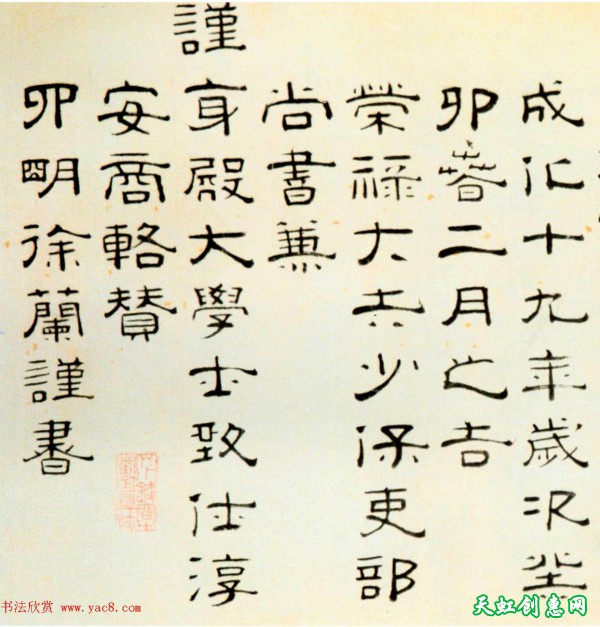 成化十九年歲次癸
卯春二月之吉
榮祿大夫少保吏部
尚書兼
謹身殿大學士致仕淳
安商輅贊
四明徐蘭謹書
书法欣赏 www.yac8.com
天虹创惠网